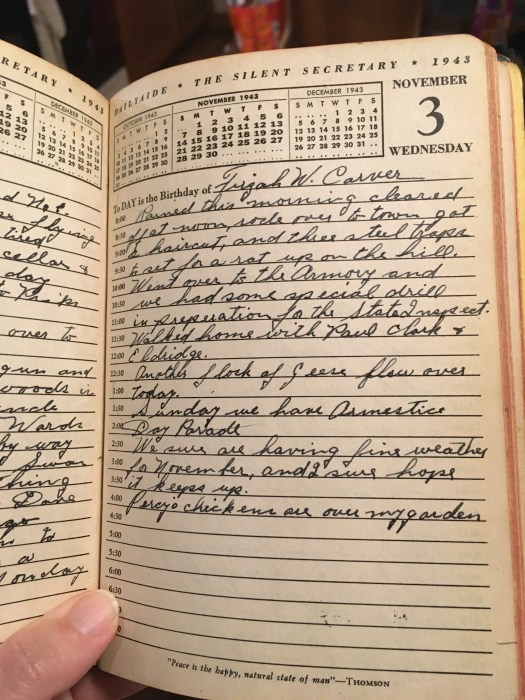 RETARY * 1943
DAILYAIDE * THE SILENT SECRETARY * 1943
DECEMBER 1943
OCTOBER 1943
NOVEMBER 1943
DECEMBER 1943
S M T W T F S
S M T W T F S
S M T W T F S
1 2 3 4 5 6
1 2 3 4
7 8 9 10 11 12 13
5 6 7 8 9 10 11
14 15 16 17 18 19 20
12 13 14 15 16 17 18
21 22 23 24 25 26 27
19 20 21 22 23 24 25
28 29 30
26 27 28 29 30 31
NOVEMBER
3
WEDNESDAY
To DAY is the Birthday of Tirzah W. Carver
8:00 Rained this morning cleared
8:30 off at noon, rode over to town got
9:00 a haircut, and three steel traps
9:30 to set for a rat up on the hill.
10:00 Went over to the Armory and
10:30 we had some special drill
11:00 in preperation for the State Inspect.
11:30 Walked home with Paul Clark &
12:00 Eldridge.
12:30 Another flock of Geese flew over
1:00 today.
1:30 Sunday we have Armestice
2:00 Day Parade
2:30 We sure are having fine weather
3:00 for November, and I sure hope
3:30 it keeps up.
4:00 Percy's chickens are over my garden
4:30
5:00
5:30
6:00
6:30
"Peace is the happy, natural state of man"—THOMSON
flying
tired
cellar &
day
over to
gun and
woods in
Wards
by way
Dave
go
to
a
Monday